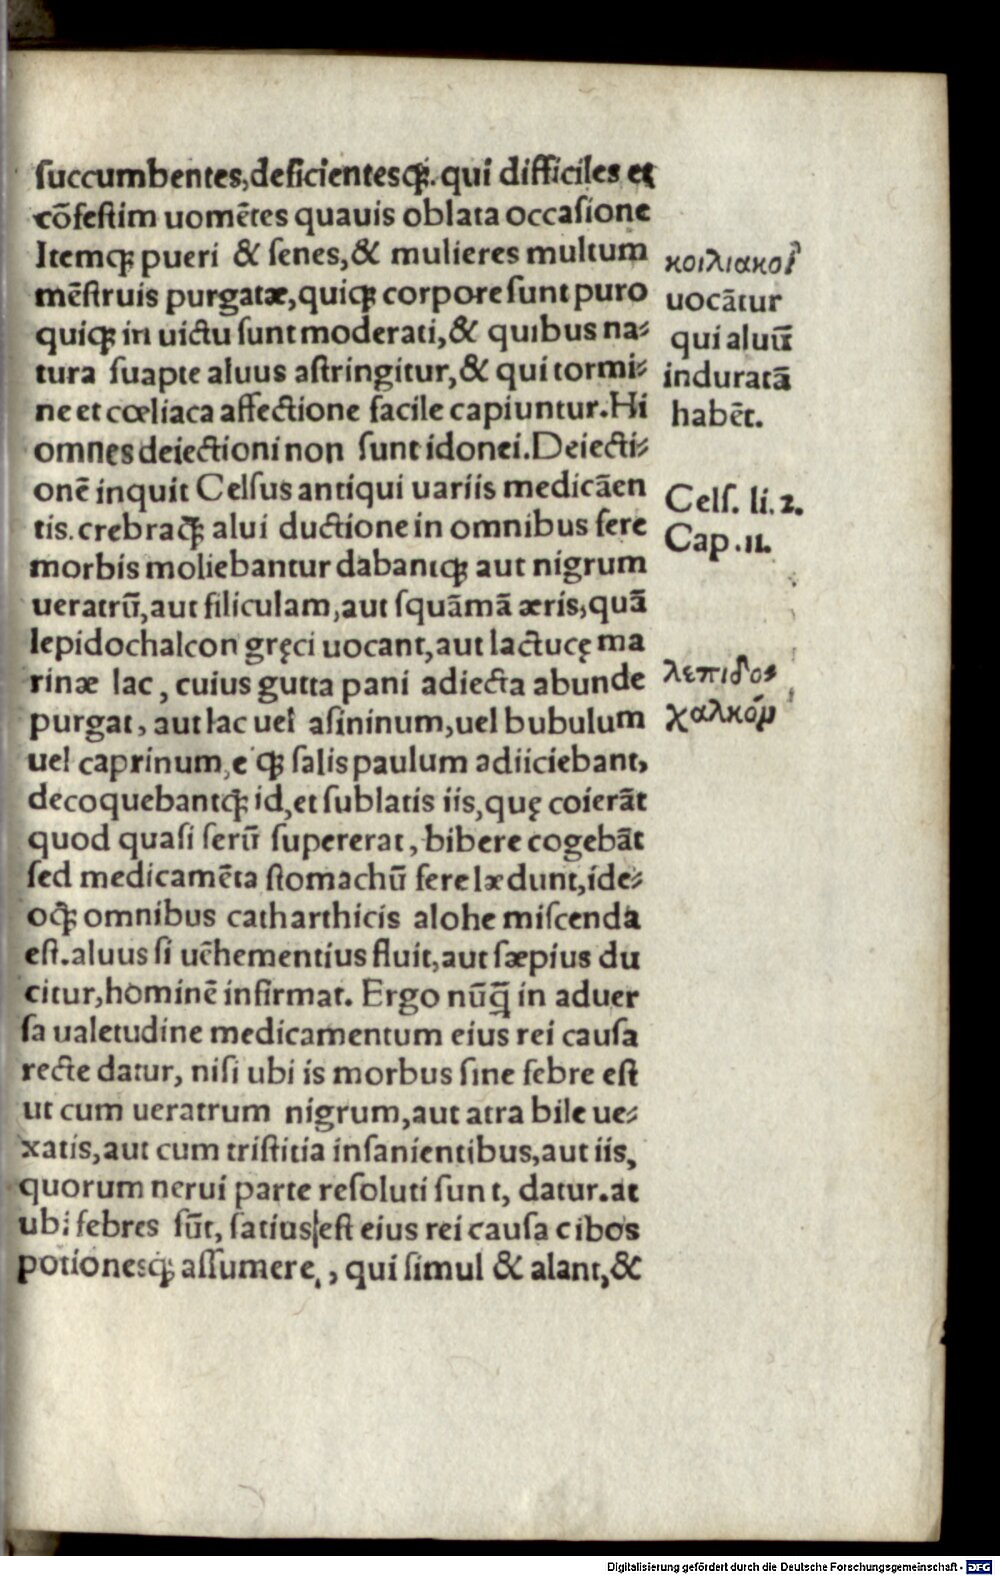 ſuccumbentes,deficientesq;. qui difficiles et
cōfeſtim uomētes quauis oblata occaſione
Itemq; pueri & ſenes,& mulieres multum
mēſtruis purgatæ,quiq; corpore ſunt puro
quiq; in uictu ſunt moderati,& quibus na⸗
tura ſuapte aluus aſtringitur,& qui tormi⸗
ne et cœliaca affectione facile capiuntur.Hi
omnes deiectioni non ſunt idonei.Deiecti⸗
onē inquit Celſus antiqui uariis medicāen
tis. crebraq; alui ductione in omnibus fere
morbis moliebantur dabantq; aut nigrum
ueratrū,aut filiculam,aut ſquāmā æris,quā
lepidochalcon gręci uocant,aut lactucę ma
rinæ lac, cuius gutta pani adiecta abunde
purgat, aut lac uel aſininum,uel bubulum
uel caprinum,e q; ſalis paulum adiiciebant,
decoquebantq; id,et ſublatis iis,quę coierāt
quod quaſi ſerū ſupererat, bibere cogebāt
ſed medicamēta ſtomachū fere lædunt,ide⸗
oq; omnibus catharthicis alohe miſcenda
eſt.aluus ſi uehementius fluit,aut ſæpius du
citur,hominē infirmat. Ergo nūq̄ in aduer
ſa ualetudine medicamentum eius rei cauſa
recte datur, niſi ubi is morbus ſine febre eſt
ut cum ueratrum nigrum,aut atra bile ue⸗
xatis,aut cum triſtitia inſanientibus,aut iis,
quorum nerui parte reſoluti ſunt, datur.at
ubi febres ſūt, ſatius eſt eius rei cauſa cibos
potionesq; aſſumere, qui ſimul & alant,&
κοιλιακοὶ
uocātur
qui aluū
induratā
habēt.
Celſ. li.2.
Cap.11.
λεπιδος
χαλκόμ
Digitalisierung gefördert durch die Deutsche Forschungsgemeinschaft - DFG